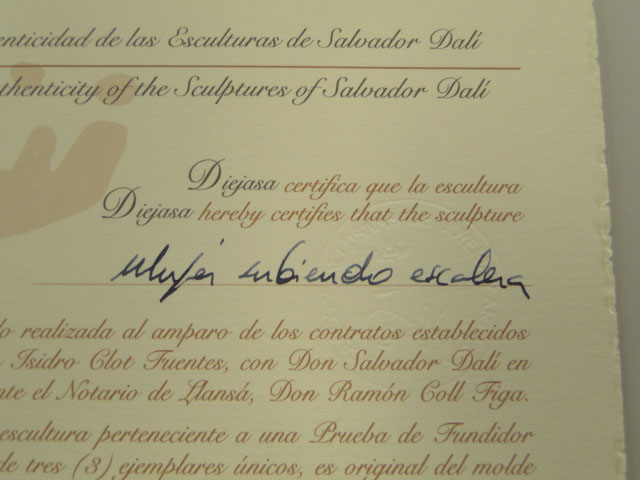 enticidad de las Esculturas de Salvador Dalí
uthenticity of the Sculptures of Salvador Dalí
Diejasa certifica que la escultura
Diejasa hereby certifies that the sculpture
Mujer subiendo escalera
do realizada al amparo de los contratos establecidos
Isidro Clot Fuentes, con Don Salvador Dalí en
nte el Notario de Llansá, Don Ramón Coll Figa.
escultura perteneciente a una Prueba de Fundidor
de tres (3) ejemplares únicos, es original del molde